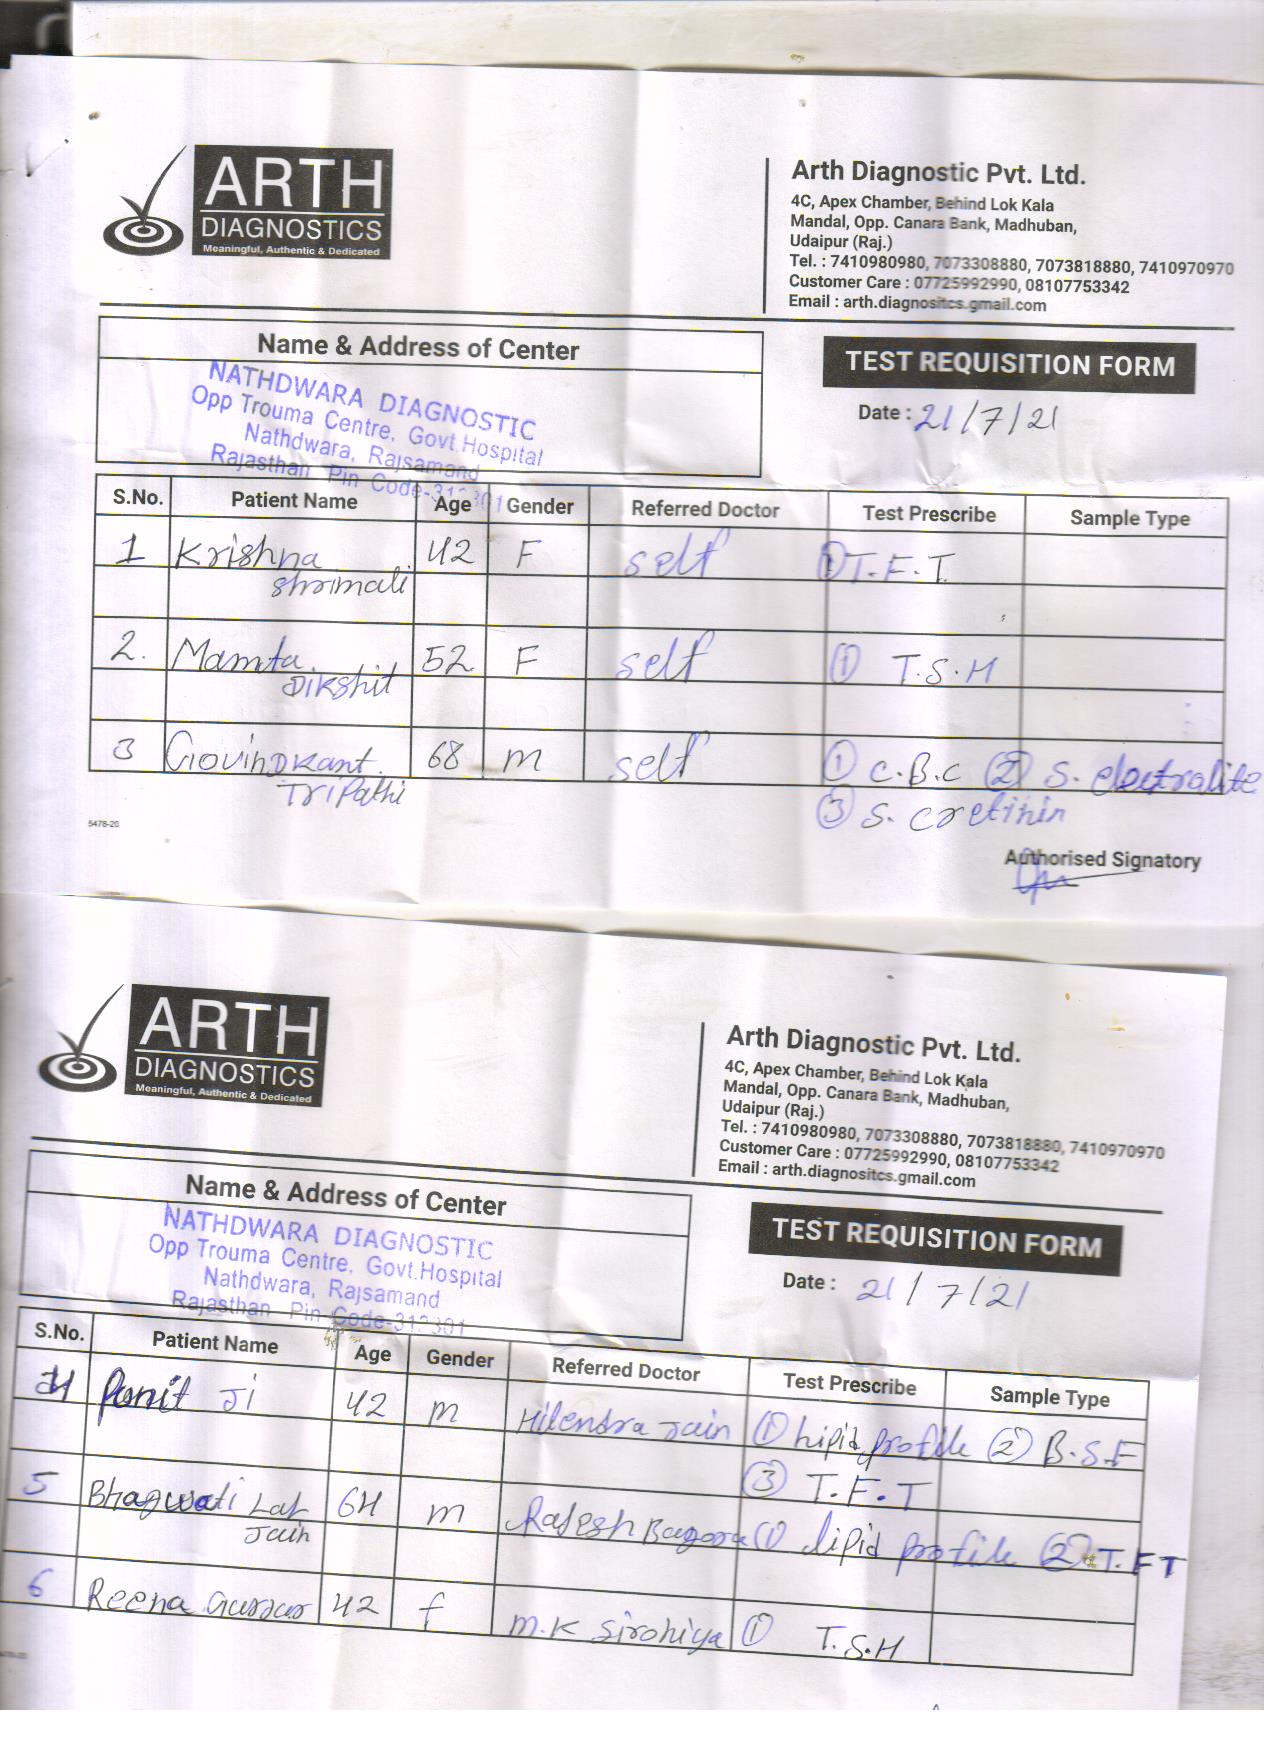 ARTH
DIAGNOSTICS
Meaningful, Authentic & Dedicated
Arth Diagnostic Pvt. Ltd.
4C, Apex Chamber, Behind Lok Kala
Mandal, Opp. Canara Bank, Madhuban,
Udaipur (Raj.)
Tel. : 7410980980, 7073308880, 7073818880, 7410970970
Customer Care : 07725992990, 08107753342
Email : arth.diagnositcs.gmail.com
Name & Address of Center
NATHDWARA DIAGNOSTIC
Opp Trouma Centre, Govt.Hospital
Nathdwara, Rajsamand
Rajasthan Pin Code-313301
TEST REQUISITION FORM
Date : 21/7/21
S.No. Patient Name Age Gender Referred Doctor Test Prescribe Sample Type
1 Krishna 42 F self ① T.F.T.
Shrimali
2. Mamta 52 F self ① T.S.H
Dikshit
3 Govindkant 68 m self ① C.B.C ② S. electralite
Tripathi ③ S. cretinin
5478-20
Authorised Signatory
ARTH
DIAGNOSTICS
Meaningful, Authentic & Dedicated
Arth Diagnostic Pvt. Ltd.
4C, Apex Chamber, Behind Lok Kala
Mandal, Opp. Canara Bank, Madhuban,
Udaipur (Raj.)
Tel. : 7410980980, 7073308880, 7073818880, 7410970970
Customer Care : 07725992990, 08107753342
Email : arth.diagnositcs.gmail.com
Name & Address of Center
NATHDWARA DIAGNOSTIC
Opp Trouma Centre, Govt.Hospital
Nathdwara, Rajsamand
Rajasthan Pin Code-313301
TEST REQUISITION FORM
Date : 21/7/21
S.No. Patient Name Age Gender Referred Doctor Test Prescribe Sample Type
4 Ji 42 m Hitendra Jain ① Lipid profile ② B.S.F
③ T.F.T
5 Bhagwati Lal 64 m Rajesh Bagora ① lipid profile ② T.FT
Jain
6 Reena Gurjar 42 f M.K Sirohiya ① T.S.H